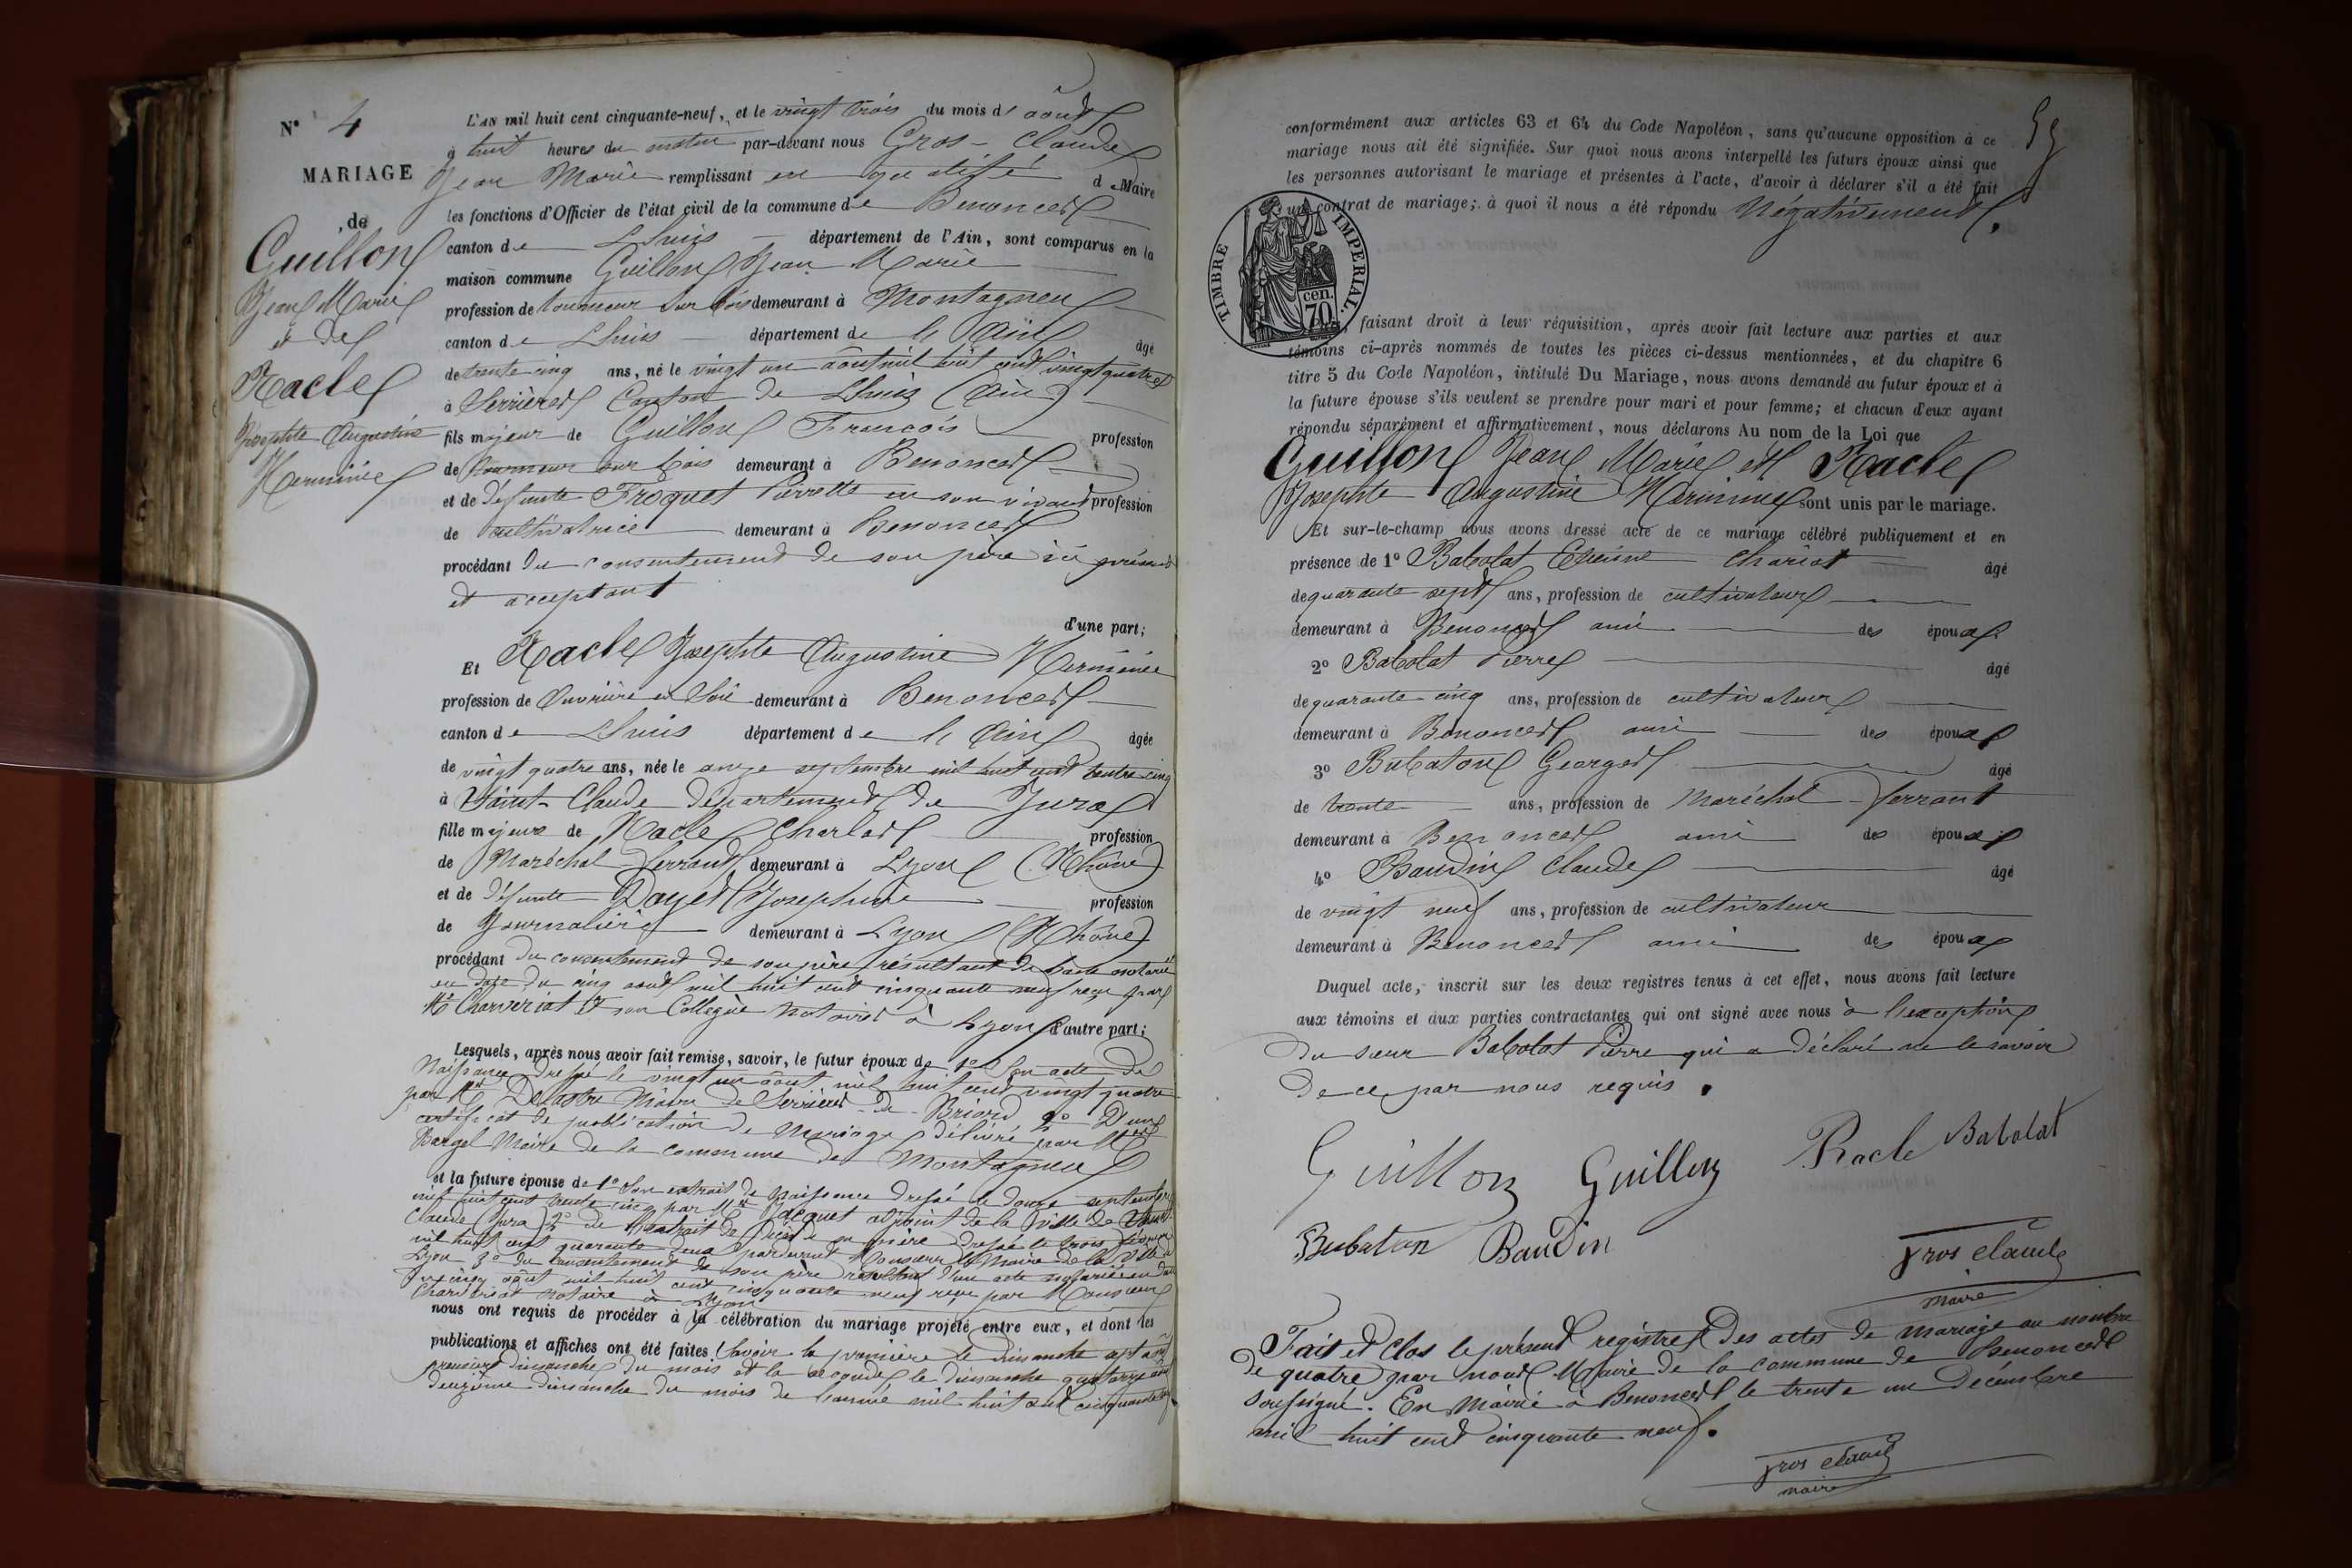 N° 4
MARIAGE
de
Guillon
Jean Marie
et de
Racle
Josephte Augustine
Herminie
L'AN mil huit cent cinquante-neuf, et le vingt trois du mois d' août
à huit heures du matin par-devant nous Gros-Claude
Jean Marie remplissant en qualité de Maire
les fonctions d'Officier de l'état civil de la commune de Benonces
canton de Lhuis département de l'Ain, sont comparus en la
maison commune Guillon Jean Marie
profession de tourneur sur bois demeurant à Montagneu
canton de Lhuis département de l'Ain âgé
de trente cinq ans, né le vingt un août mil huit cent vingt quatre
à Serrières Canton de Lhuis (Ain)
fils majeur de Guillon François profession
de tourneur sur bois demeurant à Benonces
et de défunte Froquet Pierrette en son vivant profession
de cultivatrice demeurant à Benonces
procédant du consentement de son père ici présent
et acceptant
d'une part;
Et Racle Josephte Augustine Herminie
profession de Ouvrière en Soie demeurant à Benonces
canton de Lhuis département de l'Ain âgée
de vingt quatre ans, née le onze septembre mil huit cent trente cinq
à Saint-Claude département du Jura
fille majeure de Racle Charles profession
de Maréchal Ferrant demeurant à Lyon (Rhône)
et de défunte Dayet Josephine profession
de Journalière demeurant à Lyon (Rhône)
procédant du consentement de son père résultant de l'acte notarié
en date du cinq août mil huit cent cinquante neuf reçu par
Me Charvériat et son Collègue notaires à Lyon d'autre part;
Lesquels, après nous avoir fait remise, savoir, le futur époux de 1° Son acte de
Naissance dressé le vingt un août mil huit cent vingt quatre
par Mr Delastre Maire de Serrières de Briord 2° D'un
certificat de publication de Mariage délivré par Mr
Bargel Maire de la commune de Montagneu
et la future épouse de 1° Son extrait de Naissance dressé le douze septembre
mil huit cent trente cinq par Mr Jacquet adjoint de la Ville de Saint
Claude (Jura) 2° de l'extrait de Décès de sa mère dressé le trois
mil huit cent quarante par devant Monsieur le Maire de la Ville de
Lyon 3° du consentement de son père résultant d'un acte notarié en date
du cinq août mil huit cent cinquante neuf reçu par Monsieur
Charvériat notaire à Lyon
nous ont requis de procéder à la célébration du mariage projeté entre eux, et dont les
publications et affiches ont été faites Savoir la première le dimanche sept août
premier dimanche du mois et la seconde le dimanche quatorze août
deuxième dimanche du mois de l'année mil huit cent cinquante neuf
59
conformément aux articles 63 et 64 du Code Napoléon, sans qu'aucune opposition à ce
mariage nous ait été signifiée. Sur quoi nous avons interpellé les futurs époux ainsi que
les personnes autorisant le mariage et présentes à l'acte, d'avoir à déclarer s'il a été fait
un contrat de mariage; à quoi il nous a été répondu Négativement.
TIMBRE IMPERIAL.
70 cen.
faisant droit à leur réquisition, après avoir fait lecture aux parties et aux
témoins ci-après nommés de toutes les pièces ci-dessus mentionnées, et du chapitre 6
titre 5 du Code Napoléon, intitulé Du Mariage, nous avons demandé au futur époux et à
la future épouse s'ils veulent se prendre pour mari et pour femme; et chacun d'eux ayant
répondu séparément et affirmativement, nous déclarons Au nom de la Loi que
Guillon Jean Marie et Racle
Josephte Augustine Herminie sont unis par le mariage.
Et sur-le-champ nous avons dressé acte de ce mariage célébré publiquement et en
présence de 1° Babolat Etienne Chariot âgé
de quarante sept ans, profession de cultivateur
demeurant à Benonces ami des époux
2° Babolat Pierre âgé
de quarante cinq ans, profession de cultivateur
demeurant à Benonces ami des époux
3° Bubaton Georges âgé
de trente ans, profession de Maréchal Ferrant
demeurant à Benonces ami des époux
4° Baudin Claude âgé
de vingt neuf ans, profession de cultivateur
demeurant à Benonces ami des époux
Duquel acte, inscrit sur les deux registres tenus à cet effet, nous avons fait lecture
aux témoins et aux parties contractantes qui ont signé avec nous à l'exception
du sieur Babolat Pierre qui a déclaré ne le savoir
de ce par nous requis.
Guillon Guillon Racle Babolat
Bubaton Baudin
gros claude
maire
Fait et Clos le présent registre des actes de mariage au nombre
de quatre par nous Maire de la commune de Benonces
soussigné. En Mairie à Benonces le trente un Décembre
mil huit cent cinquante neuf.
gros claude
maire